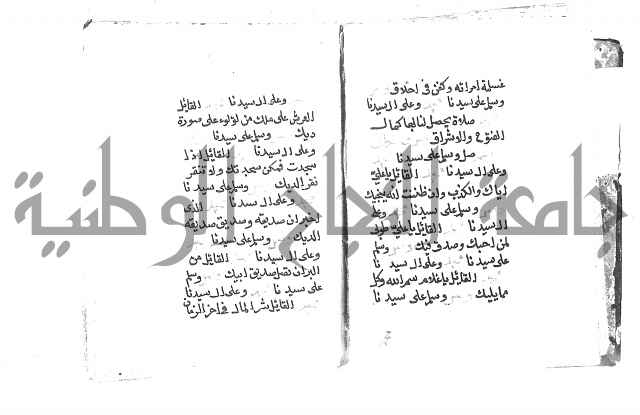 غسلة امرأته وكفن في اخلاق
وسلم على سيدنا وعلى ال سيدنا
صلاة يحصل لنا بها كمال
الفتوح والاشراق
صل وسلم على سيدنا
وعلى ال سيدنا القائل يا علي
اياك والكذب ولو ظننت انه ينجيك
وسلم على سيدنا وعلى
ال سيدنا القائل يا علي طوبى
لمن احبك وصدق فيك وسلم
على سيدنا وعلى ال سيدنا
القائل يا غلام سم الله وكل
مما يليك وسلم على سيدنا
وعلى ال سيدنا القائل
العرش على ملك من لؤلؤة على صورة
ديك وسلم على سيدنا
وعلى ال سيدنا القائل اذا
سجدت فمكن سجدتك ولا تنقر
نقر الديك وسلم على سيدنا
وعلى ال سيدنا الذي
اخبر ان صديقه وصديق صديقه
الديك وسلم على سيدنا
وعلى ال سيدنا القائل من
البر ان تصل صديق ابيك وسلم
على سيدنا وعلى ال سيدنا
القائل شر المال في اخر الزمان
جامعة النجاح الوطنية